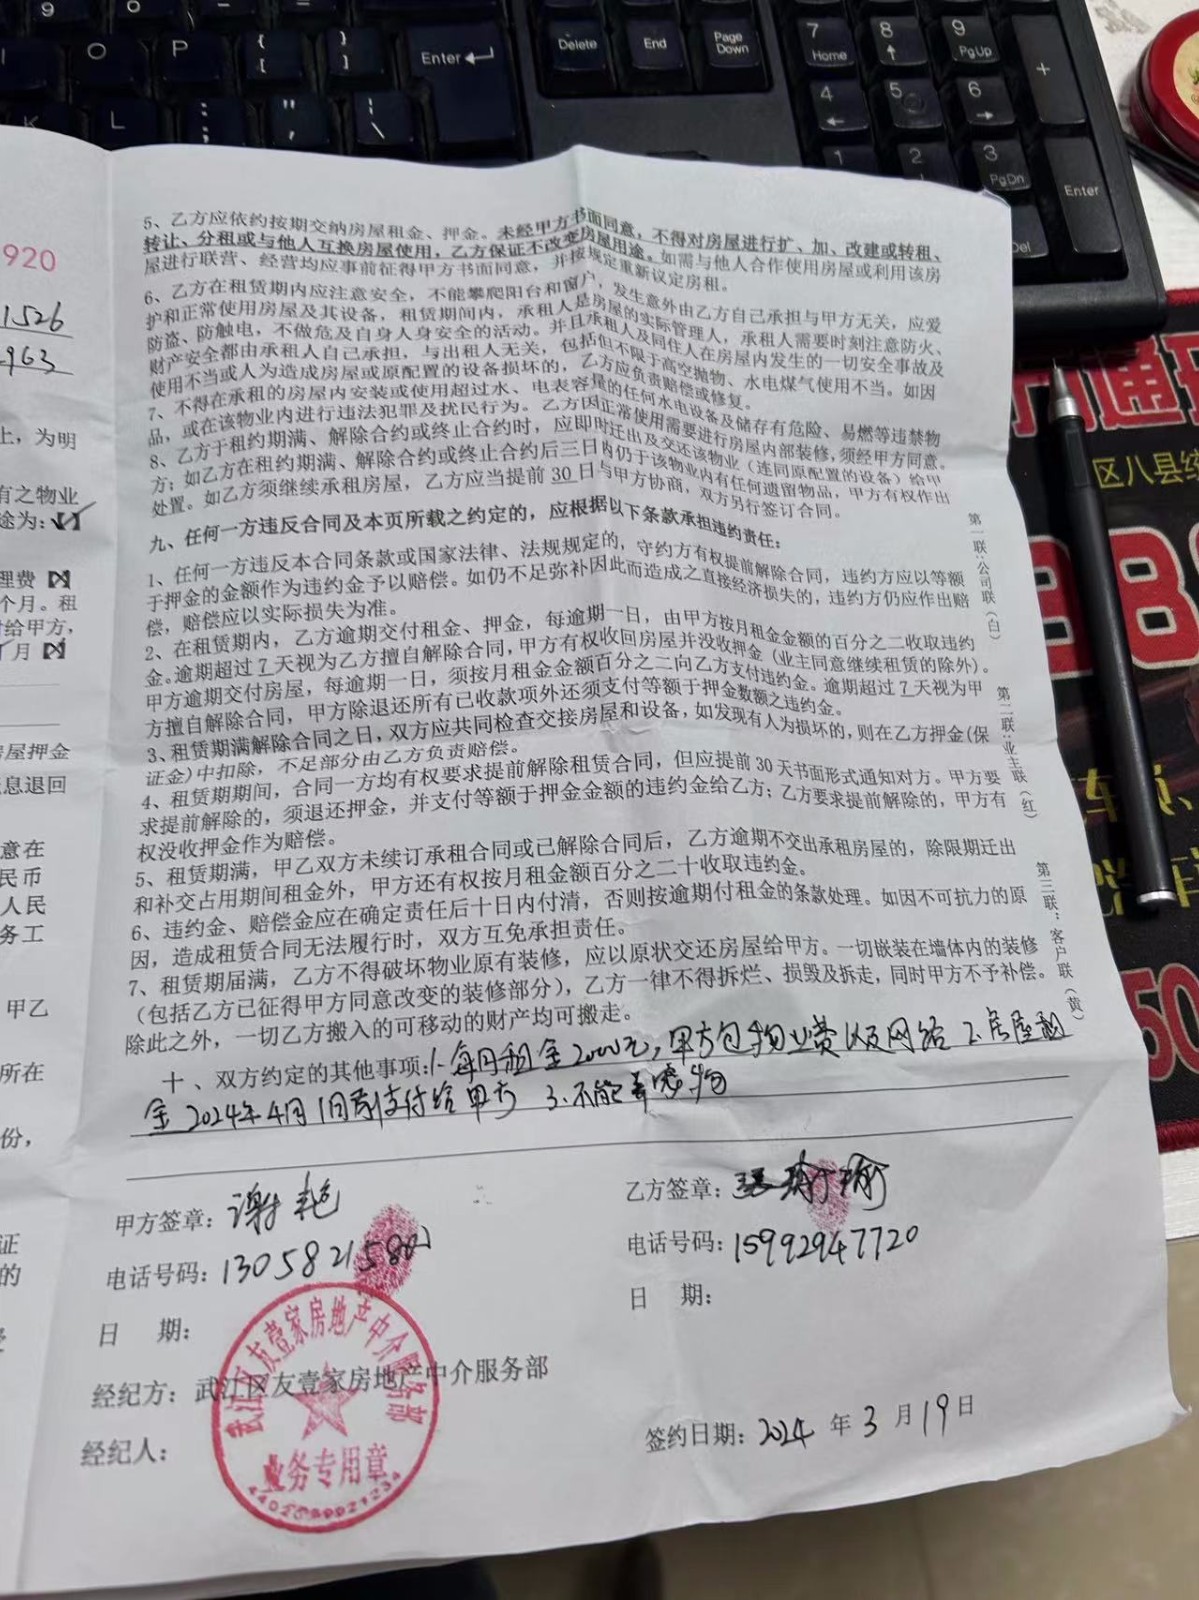 9
O
P
{
[
}
]
Enter
Delete
End
Page
Down
7
Home
8
9
PgUp
+
K
L
:
;
"
'
|
\
4
5
6
1
2
3
PgDn
Enter
Del
920
1526
963
上，为明
有之物业
途为：
理费
个月。租
付给甲方，
月
房屋押金
息退回
意在
民币
人民
务工
甲乙
所在
份，
证
的
5、乙方应依约按期交纳房屋租金、押金。未经甲方书面同意，不得对房屋进行扩、加、改建或转租、
转让、分租或与他人互换房屋使用，乙方保证不改变房屋用途。如需与他人合作使用房屋或利用该房
屋进行联营、经营均应事前征得甲方书面同意，并按规定重新议定房租。
6、乙方在租赁期内应注意安全，不能攀爬阳台和窗户，发生意外由乙方自己承担与甲方无关，应爱
护和正常使用房屋及其设备，租赁期间内，承租人是房屋的实际管理人，承租人需要时刻注意防火、
防盗、防触电，不做危及自身人身安全的活动。并且承租人及同住人在房屋内发生的一切安全事故及
财产安全都由承租人自己承担，与出租人无关，包括但不限于高空抛物、水电煤气使用不当。如因
使用不当或人为造成房屋或原配置的设备损坏的，乙方应负责赔偿或修复。
7、不得在承租的房屋内安装或使用超过水、电表容量的任何水电设备及储存有危险、易燃等违禁物
品，或在该物业内进行违法犯罪及扰民行为。乙方因正常使用需要进行房屋内部装修，须经甲方同意。
8、乙方于租约期满、解除合约或终止合约时，应即时迁出及交还该物业（连同原配置的设备）给甲
方；如乙方在租约期满、解除合约或终止合约后三日内仍于该物业内有任何遗留物品，甲方有权作出
处置。如乙方须继续承租房屋，乙方应当提前 30 日与甲方协商，双方另行签订合同。
九、任何一方违反合同及本页所载之约定的，应根据以下条款承担违约责任：
1、任何一方违反本合同条款或国家法律、法规规定的，守约方有权提前解除合同，违约方应以等额
于押金的金额作为违约金予以赔偿。如仍不足弥补因此而造成之直接经济损失的，违约方仍应作出赔
偿，赔偿应以实际损失为准。
2、在租赁期内，乙方逾期交付租金、押金，每逾期一日，由甲方按月租金金额的百分之二收取违约
金。逾期超过 7 天视为乙方擅自解除合同，甲方有权收回房屋并没收押金（业主同意继续租赁的除外）。
甲方逾期交付房屋，每逾期一日，须按月租金金额百分之二向乙方支付违约金。逾期超过 7 天视为甲
方擅自解除合同，甲方除退还所有已收款项外还须支付等额于押金数额之违约金。
3、租赁期满解除合同之日，双方应共同检查交接房屋和设备，如发现有人为损坏的，则在乙方押金（保
证金）中扣除，不足部分由乙方负责赔偿。
4、租赁期期间，合同一方均有权要求提前解除租赁合同，但应提前 30 天书面形式通知对方。甲方要
求提前解除的，须退还押金，并支付等额于押金金额的违约金给乙方；乙方要求提前解除的，甲方有
权没收押金作为赔偿。
5、租赁期满，甲乙双方未续订承租合同或已解除合同后，乙方逾期不交出承租房屋的，除限期迁出
和补交占用期间租金外，甲方还有权按月租金额百分之二十收取违约金。
6、违约金、赔偿金应在确定责任后十日内付清，否则按逾期付租金的条款处理。如因不可抗力的原
因，造成租赁合同无法履行时，双方互免承担责任。
7、租赁期届满，乙方不得破坏物业原有装修，应以原状交还房屋给甲方。一切嵌装在墙体内的装修
（包括乙方已征得甲方同意改变的装修部分），乙方一律不得拆烂、损毁及拆走，同时甲方不予补偿。
除此之外，一切乙方搬入的可移动的财产均可搬走。
十、双方约定的其他事项：1.每月租金2000元，甲方包物业费以及网络 2.房屋租
金2024年4月1日前支付给甲方 3.不能养宠物
甲方签章：谢艳
电话号码：1305821580
日 期：
经纪方：武江区友壹家房地产中介服务部
经纪人：
乙方签章：
电话号码：15992947720
日 期：
签约日期：2024 年 3 月 19 日
武江区友壹家房地产中介服务部
业务专用章
第一联：公司联（白）
第二联：业主联（红）
第三联：客户联（黄）
通
区八县
38
车
50